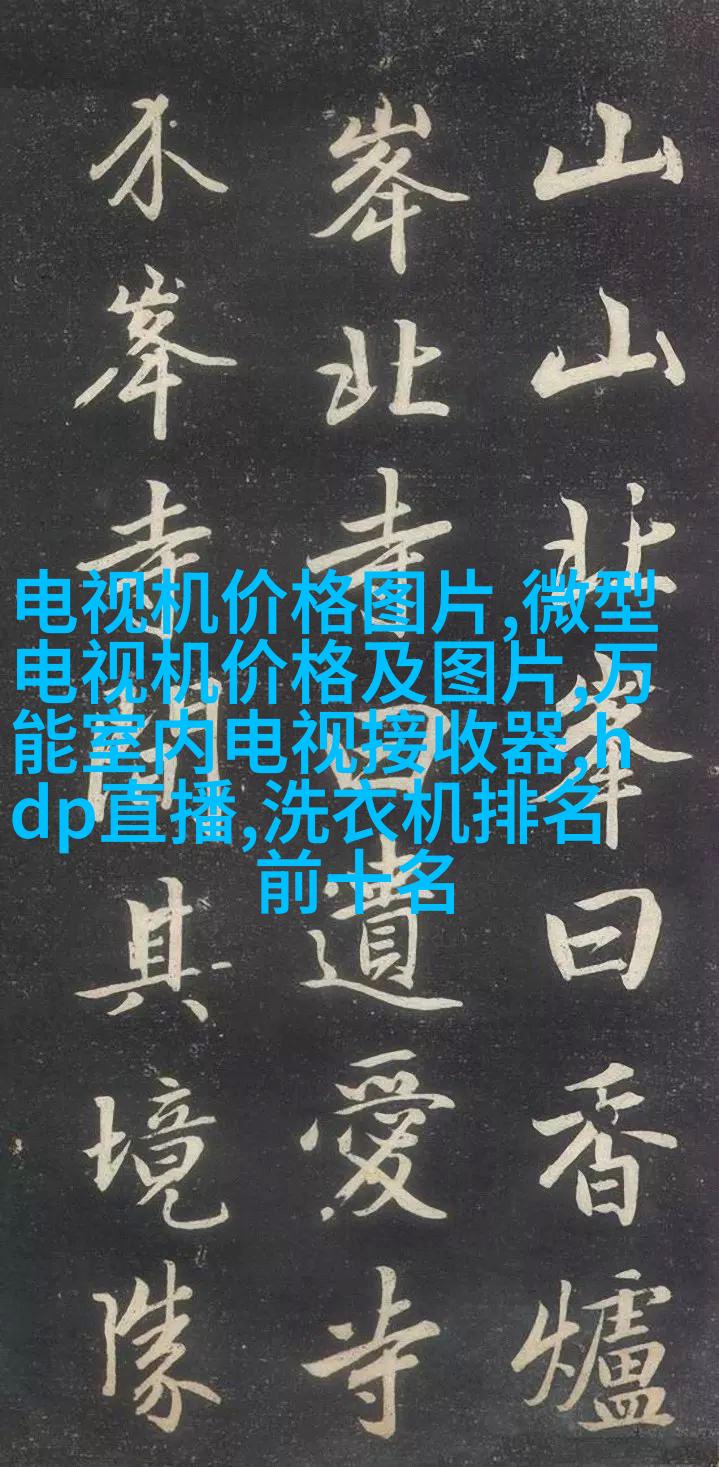 山山北峯曰香爐
峯北寺曰遺愛寺
介峯寺間其境勝
电视机价格图片,微型
电视机价格及图片,万
能室内电视接收器,h
dp直播,洗衣机排名
前十名